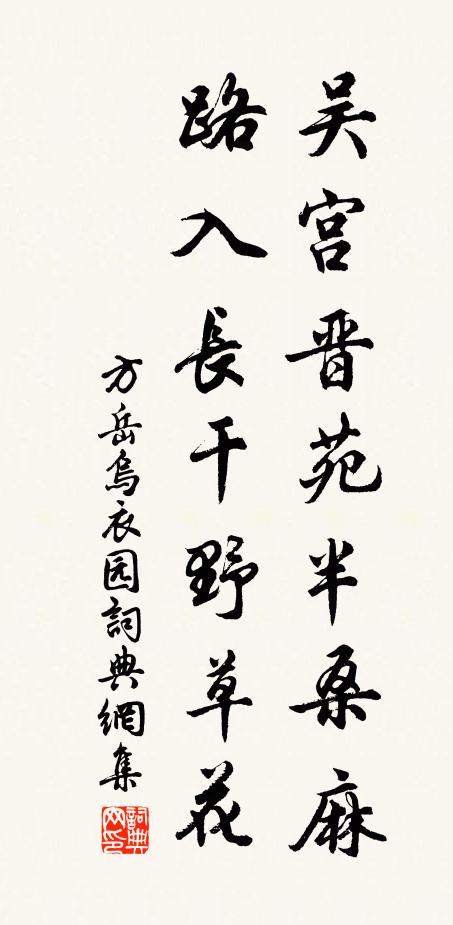 吴宫晋苑半桑麻
路入長干野草花
方岳烏衣园詞典網集
詞典网印